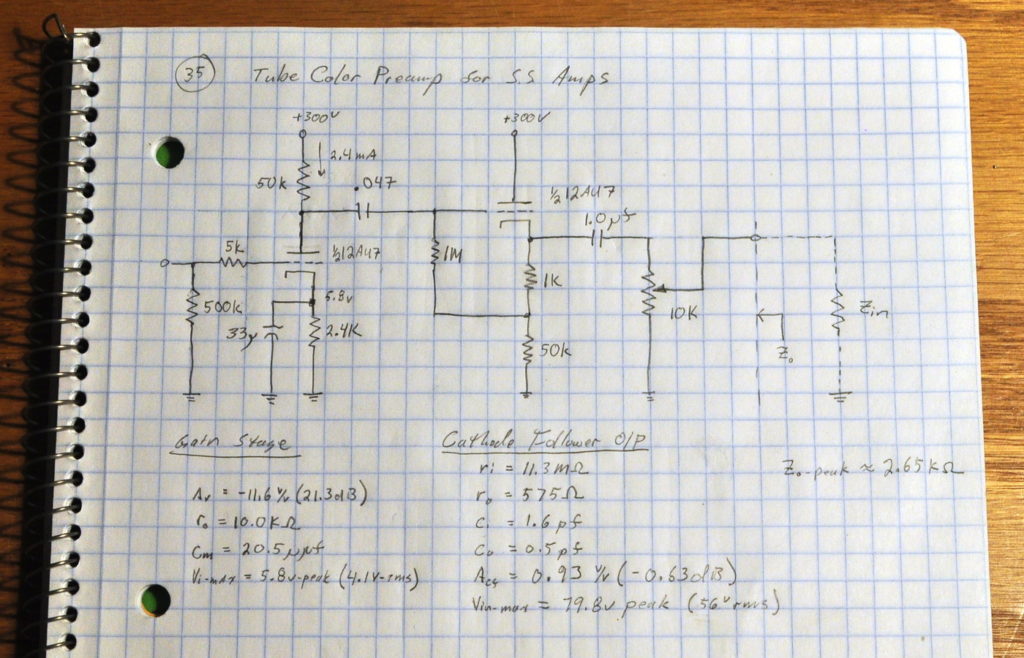 35 Tube Color Preamp for S.S Amps
+300V +300V
2.4mA
50k .047
½12AU7
1.0µf
5k ½12AU7 1M
1K
500k 5.8v 10K Zin
33µ 2.4K
50k Zo
Gain Stage
Av = -11.6 V/v (21.3dB)
ro = 10.0KΩ
Cm = 20.5µµf
Vi-max = 5.8v-peak (4.1V-rms)
Cathode Follower O/P
ri = 11.3mΩ
ro = 575Ω
Ci = 1.6pf
Co = 0.5pf
Acf = 0.93 V/v (-0.63dB)
Vin-max = 79.8v peak (56v rms)
Zo-peak ≈ 2.65kΩ